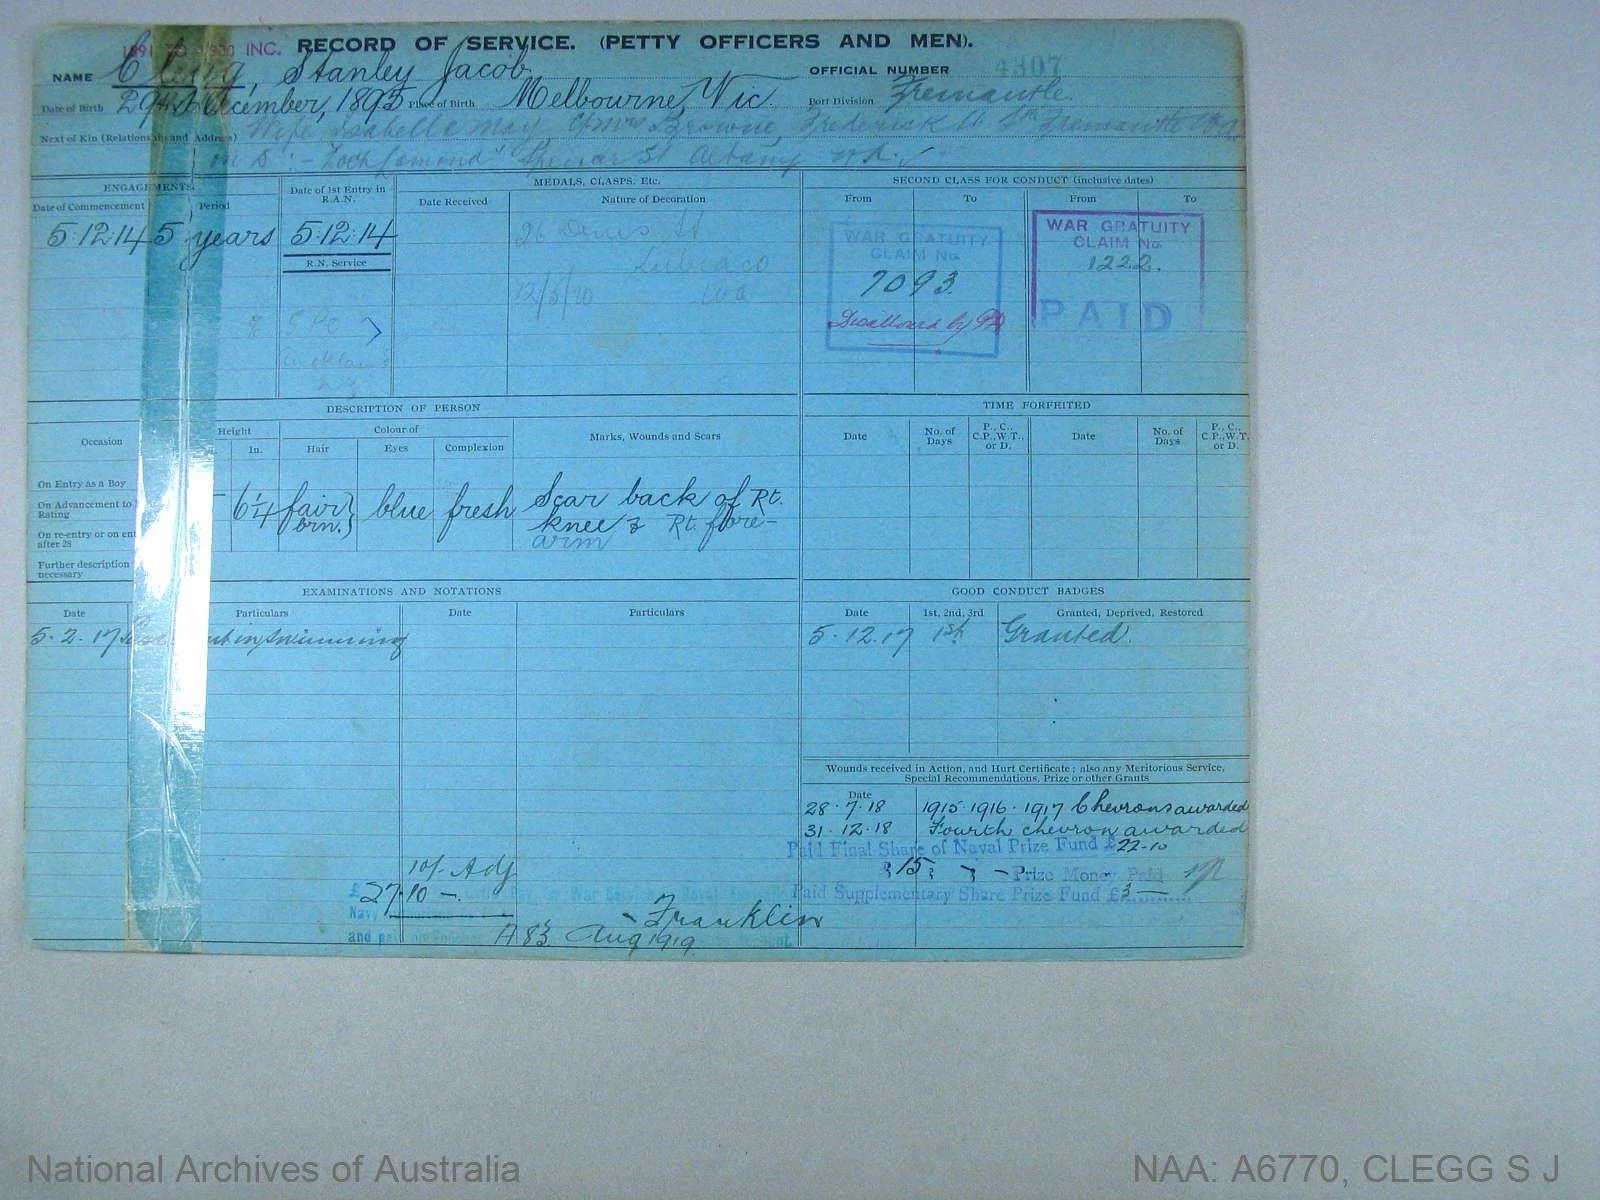 INC. RECORD OF SERVICE. (PETTY OFFICERS AND MEN).
NAME Clegg, Stanley Jacob. OFFICIAL NUMBER 4307
Date of Birth 29th December, 1895 Place of Birth Melbourne, Vic. Port Division Fremantle.
Next of Kin (Relationship and Address) Wife, Isabella May, c/o Mrs Browne, Frederick St. Fremantle
"Loch Lomond" Spencer St Albany W.A.
ENGAGEMENTS.
Date of Commencement Period
5.12.14 5 years
Date of 1st Entry in R.A.N.
5.12.14
R.N. Service
MEDALS, CLASPS, Etc.
Date Received Nature of Decoration
26 St
Subiaco
12/5/20 WA
SECOND CLASS FOR CONDUCT (inclusive dates)
From To From To
WAR GRATUITY
CLAIM No.
7093.
Disallowed by
WAR GRATUITY
CLAIM No.
1222.
PAID
DESCRIPTION OF PERSON
Occasion Height Colour of Marks, Wounds and Scars
In. Hair Eyes Complexion
On Entry as a Boy
On Advancement to
Rating
On re-entry or on
after 28
Further description
necessary
6¼ fair brn. blue fresh Scar back of Rt.
knee & Rt. fore-
arm
TIME FORFEITED
Date No. of Days P., C., C.P., W.T., or D. Date No. of Days P., C., C.P., W.T. or D.
EXAMINATIONS AND NOTATIONS
Date Particulars Date Particulars
5.2.17 swimming
10/- Adj
£27.10 –.
Navy
and
Franklin
A83 Aug 1919.
GOOD CONDUCT BADGES
Date 1st, 2nd, 3rd Granted, Deprived, Restored
5.12.17 1st Granted.
Wounds received in Action, and Hurt Certificate; also any Meritorious Service,
Special Recommendations, Prize or other Grants
Date
28.7.18 1915.1916.1917 Chevrons awarded
31.12.18 Fourth chevron awarded
Paid Final Share of Naval Prize Fund £22-10
15 Prize Money Paid
Paid Supplementary Share Prize Fund £3 —
National Archives of Australia NAA: A6770, CLEGG S J